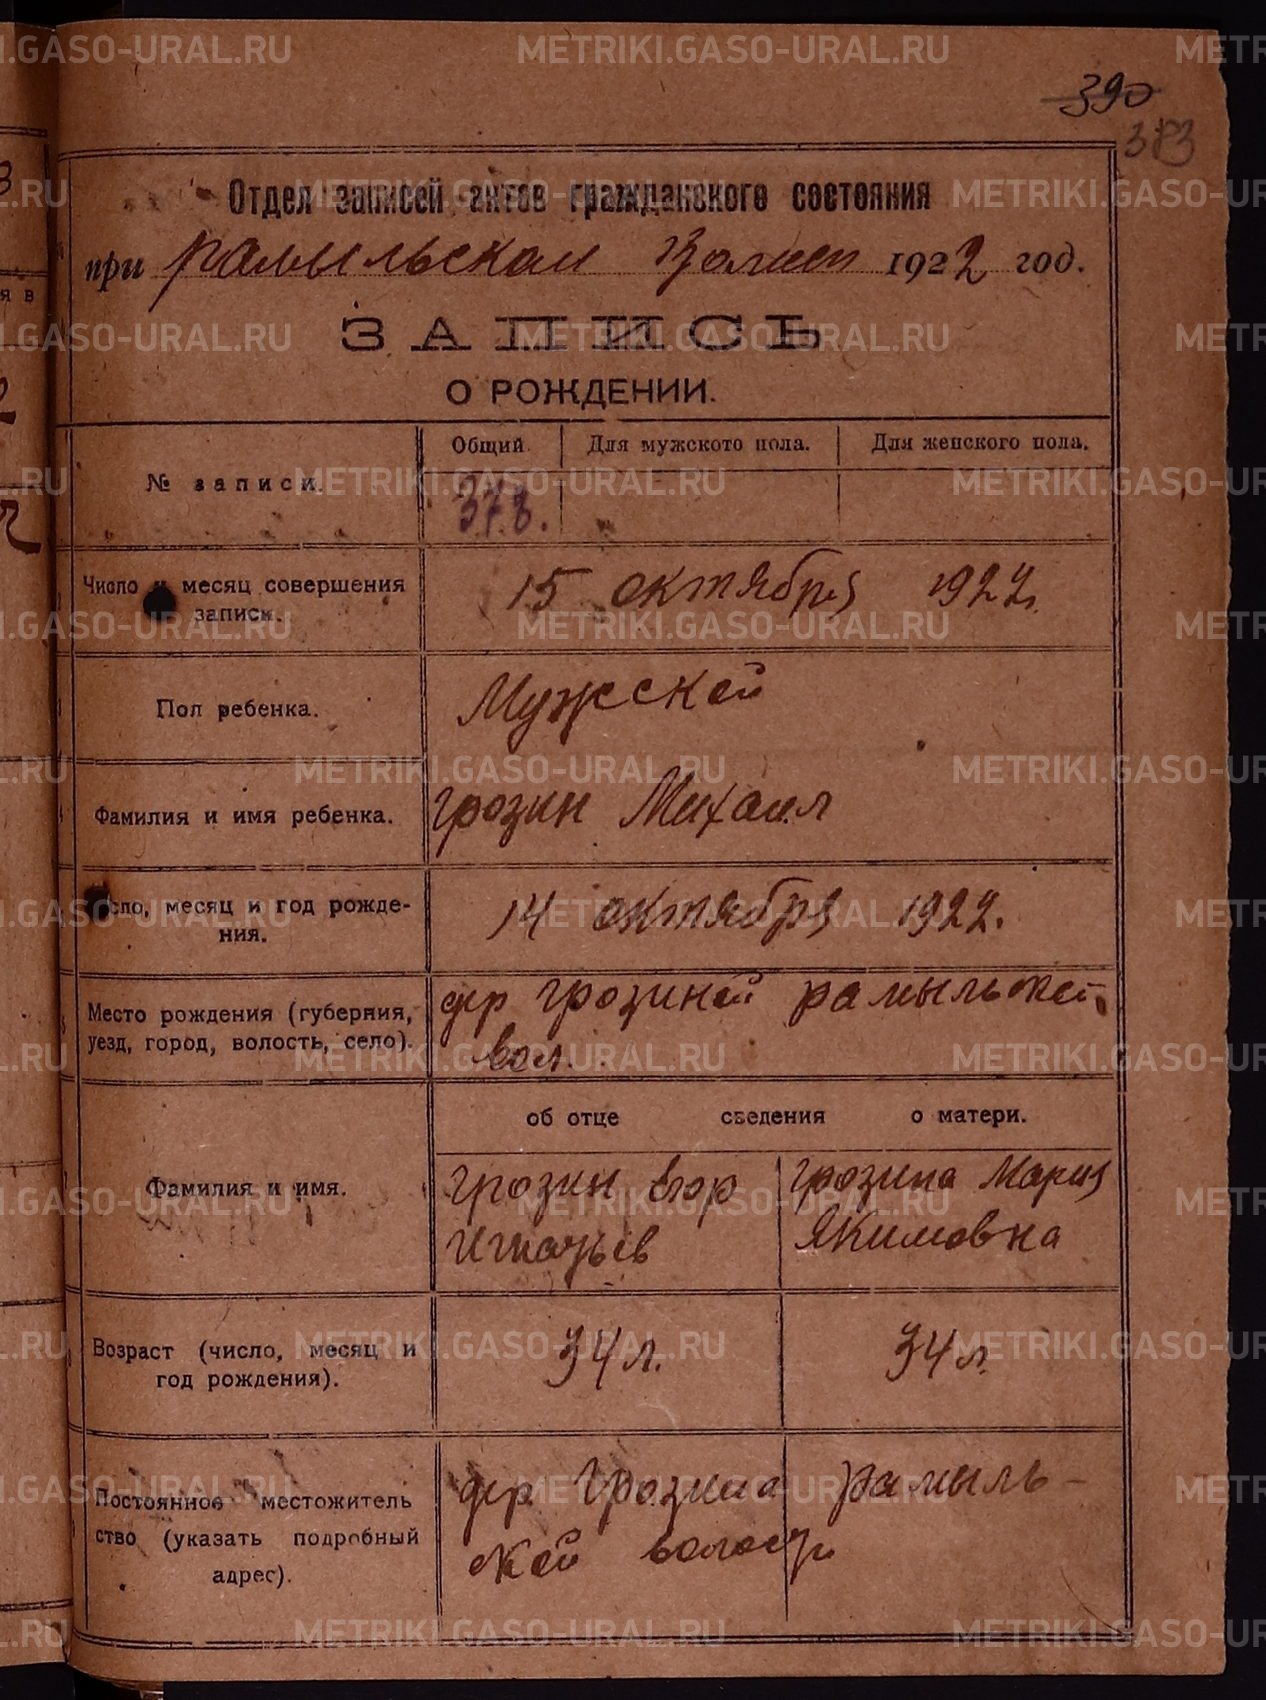 390
373
Отдел записей актов гражданского состояния
при рамыльском Волисп 1922 год.
ЗАПИСЬ
О РОЖДЕНИИ.
№ записи. Общий. Для мужского пола. Для женского пола.
373.
Число и месяц совершения записи. 15 октября 1922.
Пол ребенка. Мужской
Фамилия и имя ребенка. Грозин Михаил
сло, месяц и год рожде-
ния. 14 октября 1922.
Место рождения (губерния, дер Грозиной рамыльской
уезд, город, волость, село). вол.
об отце сведения о матери.
Фамилия и имя. Грозин Егор Грозина Мария
Игнатьев Якимовна
Возраст (число, месяц и 34 л. 34 л.
год рождения).
Постоянное местожитель дер Грозина рамыль-
ство (указать подробный ской волости
адрес).
METRIKI.GASO-URAL.RU